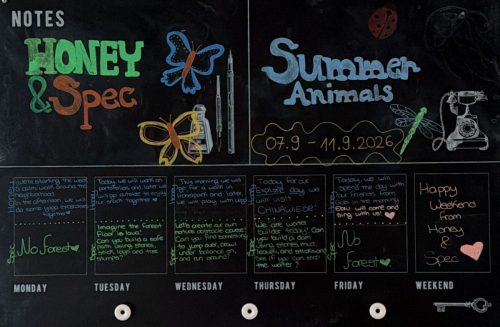 NOTES
HONEY
& Spec
Summer
Animals
07.9 - 11.9.2026
Honey
We're starting the week
a calm walk around the
neighbourhood.
In the afternoon, we will
do some yoga exercises
together ♡
Spec
No Forest♡
Honey
Today we will work on
portfolios and later we
will go outside to enjoy
together ♡
Spec
Imagine the Forest
Floor is lava!
Can you build a safe
path using stones,
stick, logs and tree
stumps?
Honey
This morning we will
go for a walk in
and later,
we will play with
Spec
Let's create our own
nature obstacle course!
Can you find something
to jump over, crawl
under, balance on
and run around?
Honey
Today for our
Explore day we
will visit
Spec
We are water
builder today! Can
you build a dam
using stones, mud,
and sticks and
see if you can stop
the water?
Honey
Today, we will
spend the day with
our friends from
in the morning.
will come and
sing with us! ♡
Spec
No
Forest♡
Happy
Weekend
from
Honey
&
Spec
MONDAY
TUESDAY
WEDNESDAY
THURSDAY
FRIDAY
WEEKEND